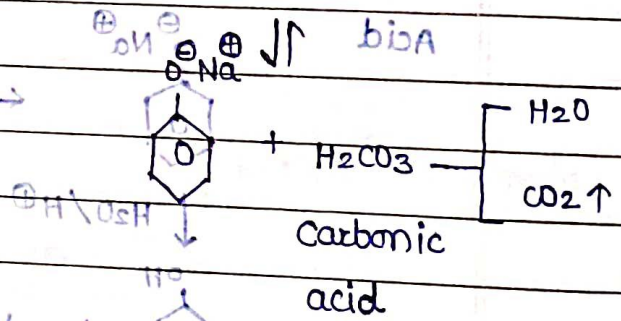 O⊖ Na⊕ ⇌
O + H2CO3 H2O
CO2↑
Carbonic
acid